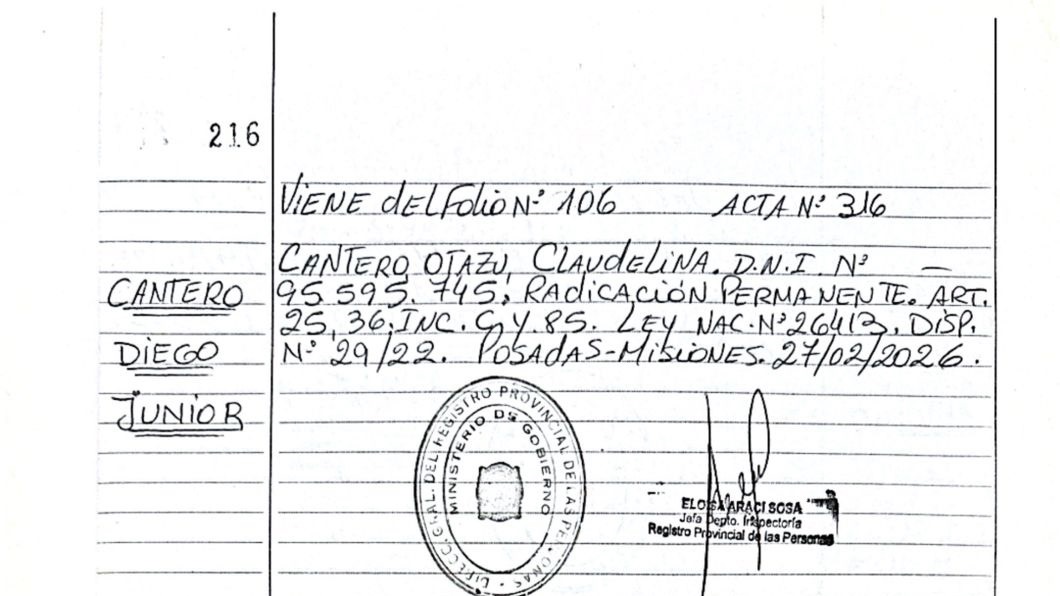 216
VIENE del Folio Nº 106 ACTA Nº 316
CANTERO OJAZU, CLAUDELINA. D.N.I. Nº —
95.595.745. RADICACIÓN PERMANENTE. ART.
25, 36, INC. C, Y. 85. LEY NAC. Nº 26413. DISP.
Nº 29/22. POSADAS-MISIONES. 27/02/2026.
CANTERO
DIEGO
JUNIOR
DIRECC. GRAL. DEL REGISTRO PROVINCIAL DE LAS PERSONAS
MINISTERIO DE GOBIERNO
ELOISA ARACI SOSA
Jefa Depto. Inspectoría
Registro Provincial de las Personas